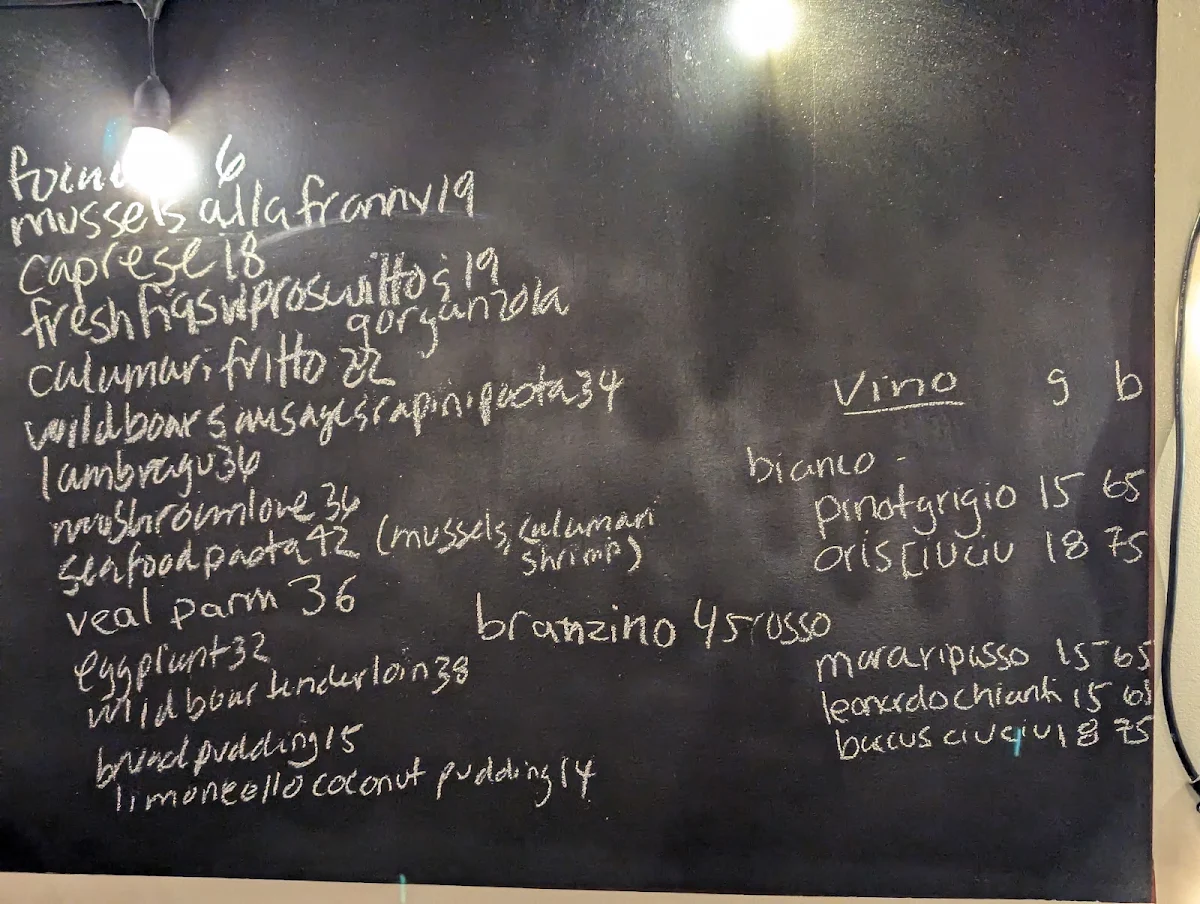 6
mussels alla franny 19
caprese 18
fresh figs w/prosciutto & 19
gorganzola
calamari fritto 22
wild boar sausage & rapini pasta 34
lamb ragu 36
mushroom love 36
seafood pasta 42 (mussels, calamari
shrimp)
veal parm 36
branzino 45
eggplant 32
wild boar tenderloin 38
bread pudding 15
limoncello coconut pudding 14
vino g b
bianco -
pinot grigio 15 65
oris ciuciu 18 75
rosso
mararipasso 15 65
leonardo chianti 15 65
baccus ciuciu 18 75